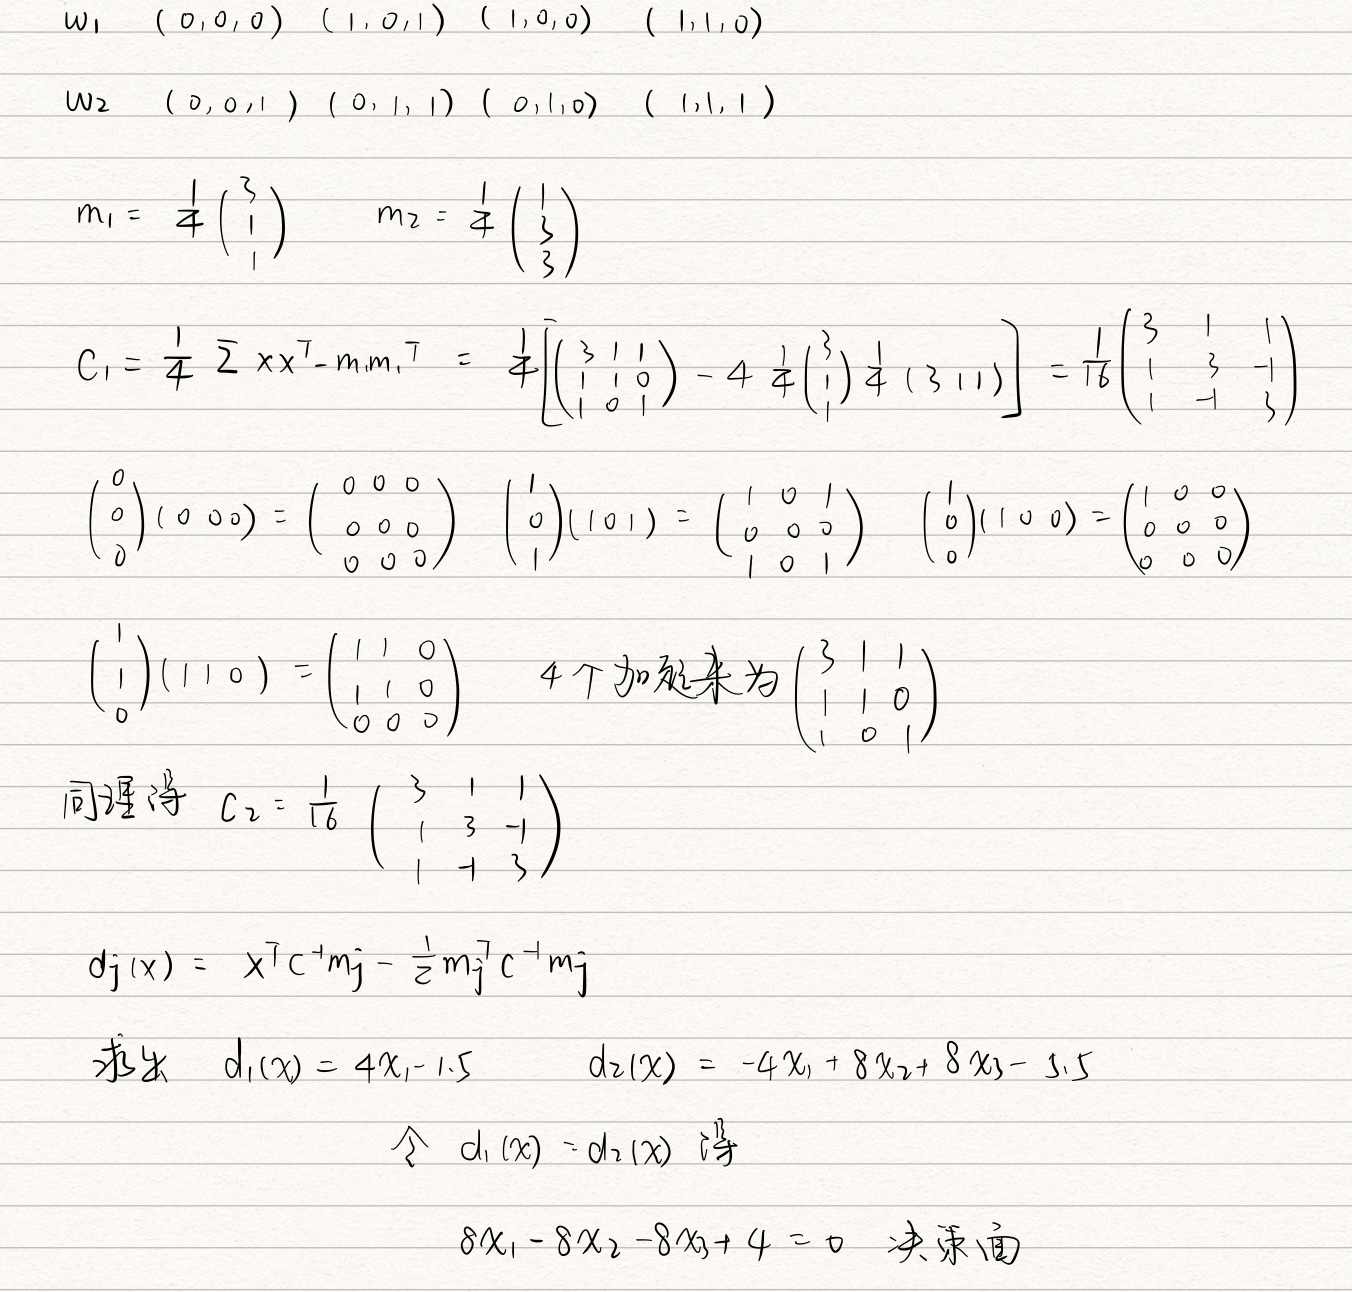 w1 (0,0,0) (1,0,1) (1,0,0) (1,1,0)
w2 (0,0,1) (0,1,1) (0,1,0) (1,1,1)
m₁ = 1/4 (3 1 1) m₂ = 1/4 (1 3 3)
C₁ = 1/4 Σ xxᵀ - m₁m₁ᵀ = 1/4 [(3 1 1; 1 1 0; 1 0 1) - 4 1/4 (3 1 1) 1/4 (3 1 1)] = 1/16 (3 1 1; 1 3 -1; 1 -1 3)
(0 0 0)(0 0 0) = (0 0 0; 0 0 0; 0 0 0) (1 0 1)(1 0 1) = (1 0 1; 0 0 0; 1 0 1) (1 0 0)(1 0 0) = (1 0 0; 0 0 0; 0 0 0)
(1 1 0)(1 1 0) = (1 1 0; 1 1 0; 0 0 0) 4个加起来为 (3 1 1; 1 1 0; 1 0 1)
同理得 C₂ = 1/16 (3 1 1; 1 3 -1; 1 -1 3)
dj(x) = xᵀC⁻¹mj - 1/2 mjᵀC⁻¹mj
求出 d₁(x) = 4x₁ - 1.5 d₂(x) = -4x₁ + 8x₂ + 8x₃ - 5.5
令 d₁(x) = d₂(x) 得
8x₁ - 8x₂ - 8x₃ + 4 = 0 决策面